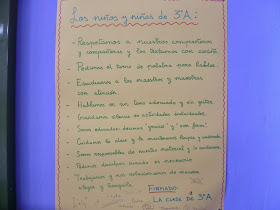 Los niños y niñas de 3ºA:
- Respetamos a nuestros compañeros
y compañeras y los tratamos con cariño.
- Pedimos el turno de palabra para hablar.
- Escuchamos a los maestros y maestras
con atención.
- Hablamos en un tono adecuado y sin gritos.
- Guardamos silencio en actividades individuales.
- Somos educados: decimos "gracias" y "por favor".
- Cuidamos la clase y la mantenemos limpia y ordenada.
- Somos responsables de nuestro material y lo cuidamos.
- Pedimos disculpas cuando es necesario.
- Trabajamos y nos relacionamos de manera
alegre y tranquila.
FIRMADO:
LA CLASE DE 3ºA